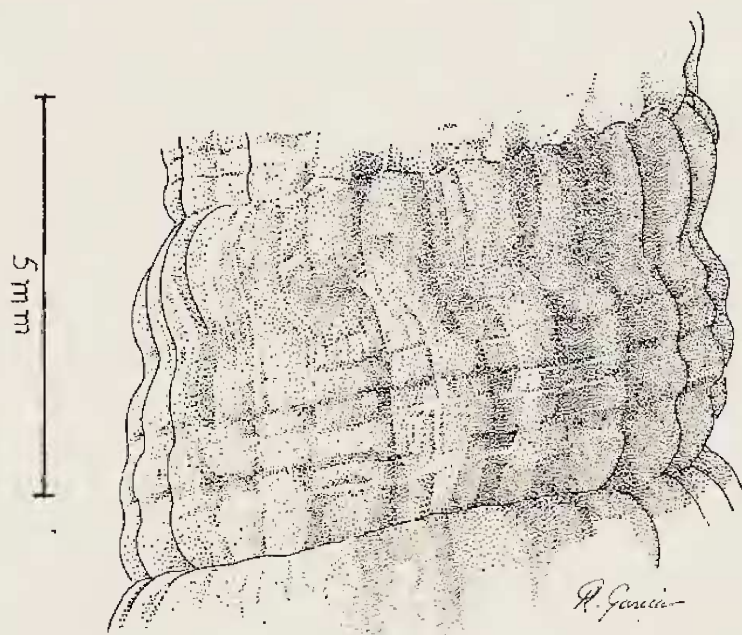 5 mm
R. Garcia